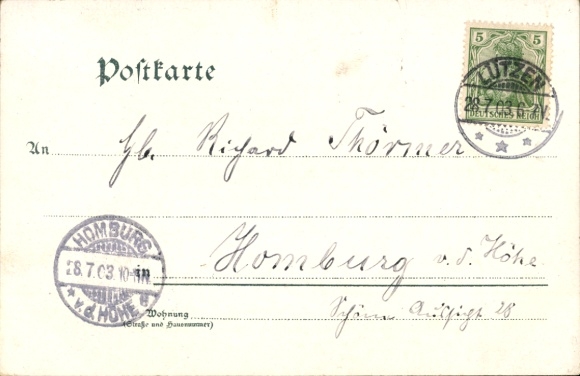 Postkarte
5 5
DEUTSCHES REICH
LÜTZEN
28.7.03.6-7N.
An Hb. Richard Thörmer
HOMBURG
28.7.03.10-11N.
a.d. HÖHE
in Homburg v. d. Höhe
Wohnung
(Straße und Hausnummer)
Schöne Aussicht 28